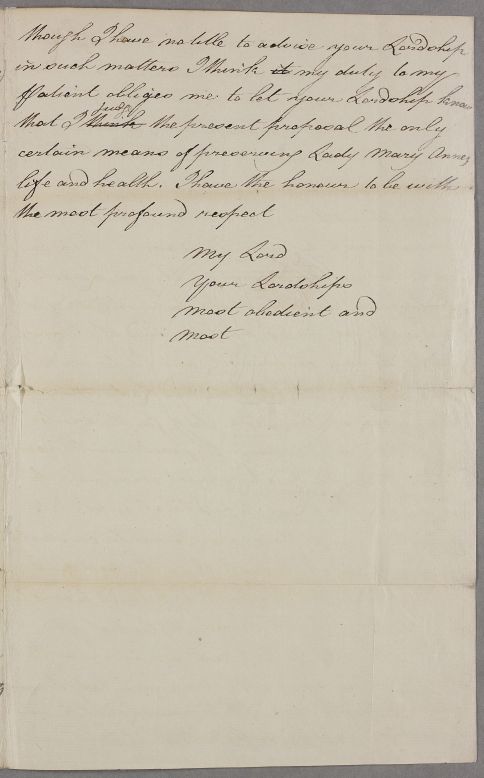 though I have no title to advise your Lordship
in such matters I think it my duty to my
Patient obliges me to let your Lordship know
judge
that I think the present proposal the only
certain means of preserving Lady Mary Annes
life and health. I have the honour to be with
the most profound respect
My Lord
Your Lordships
most obedient and
most